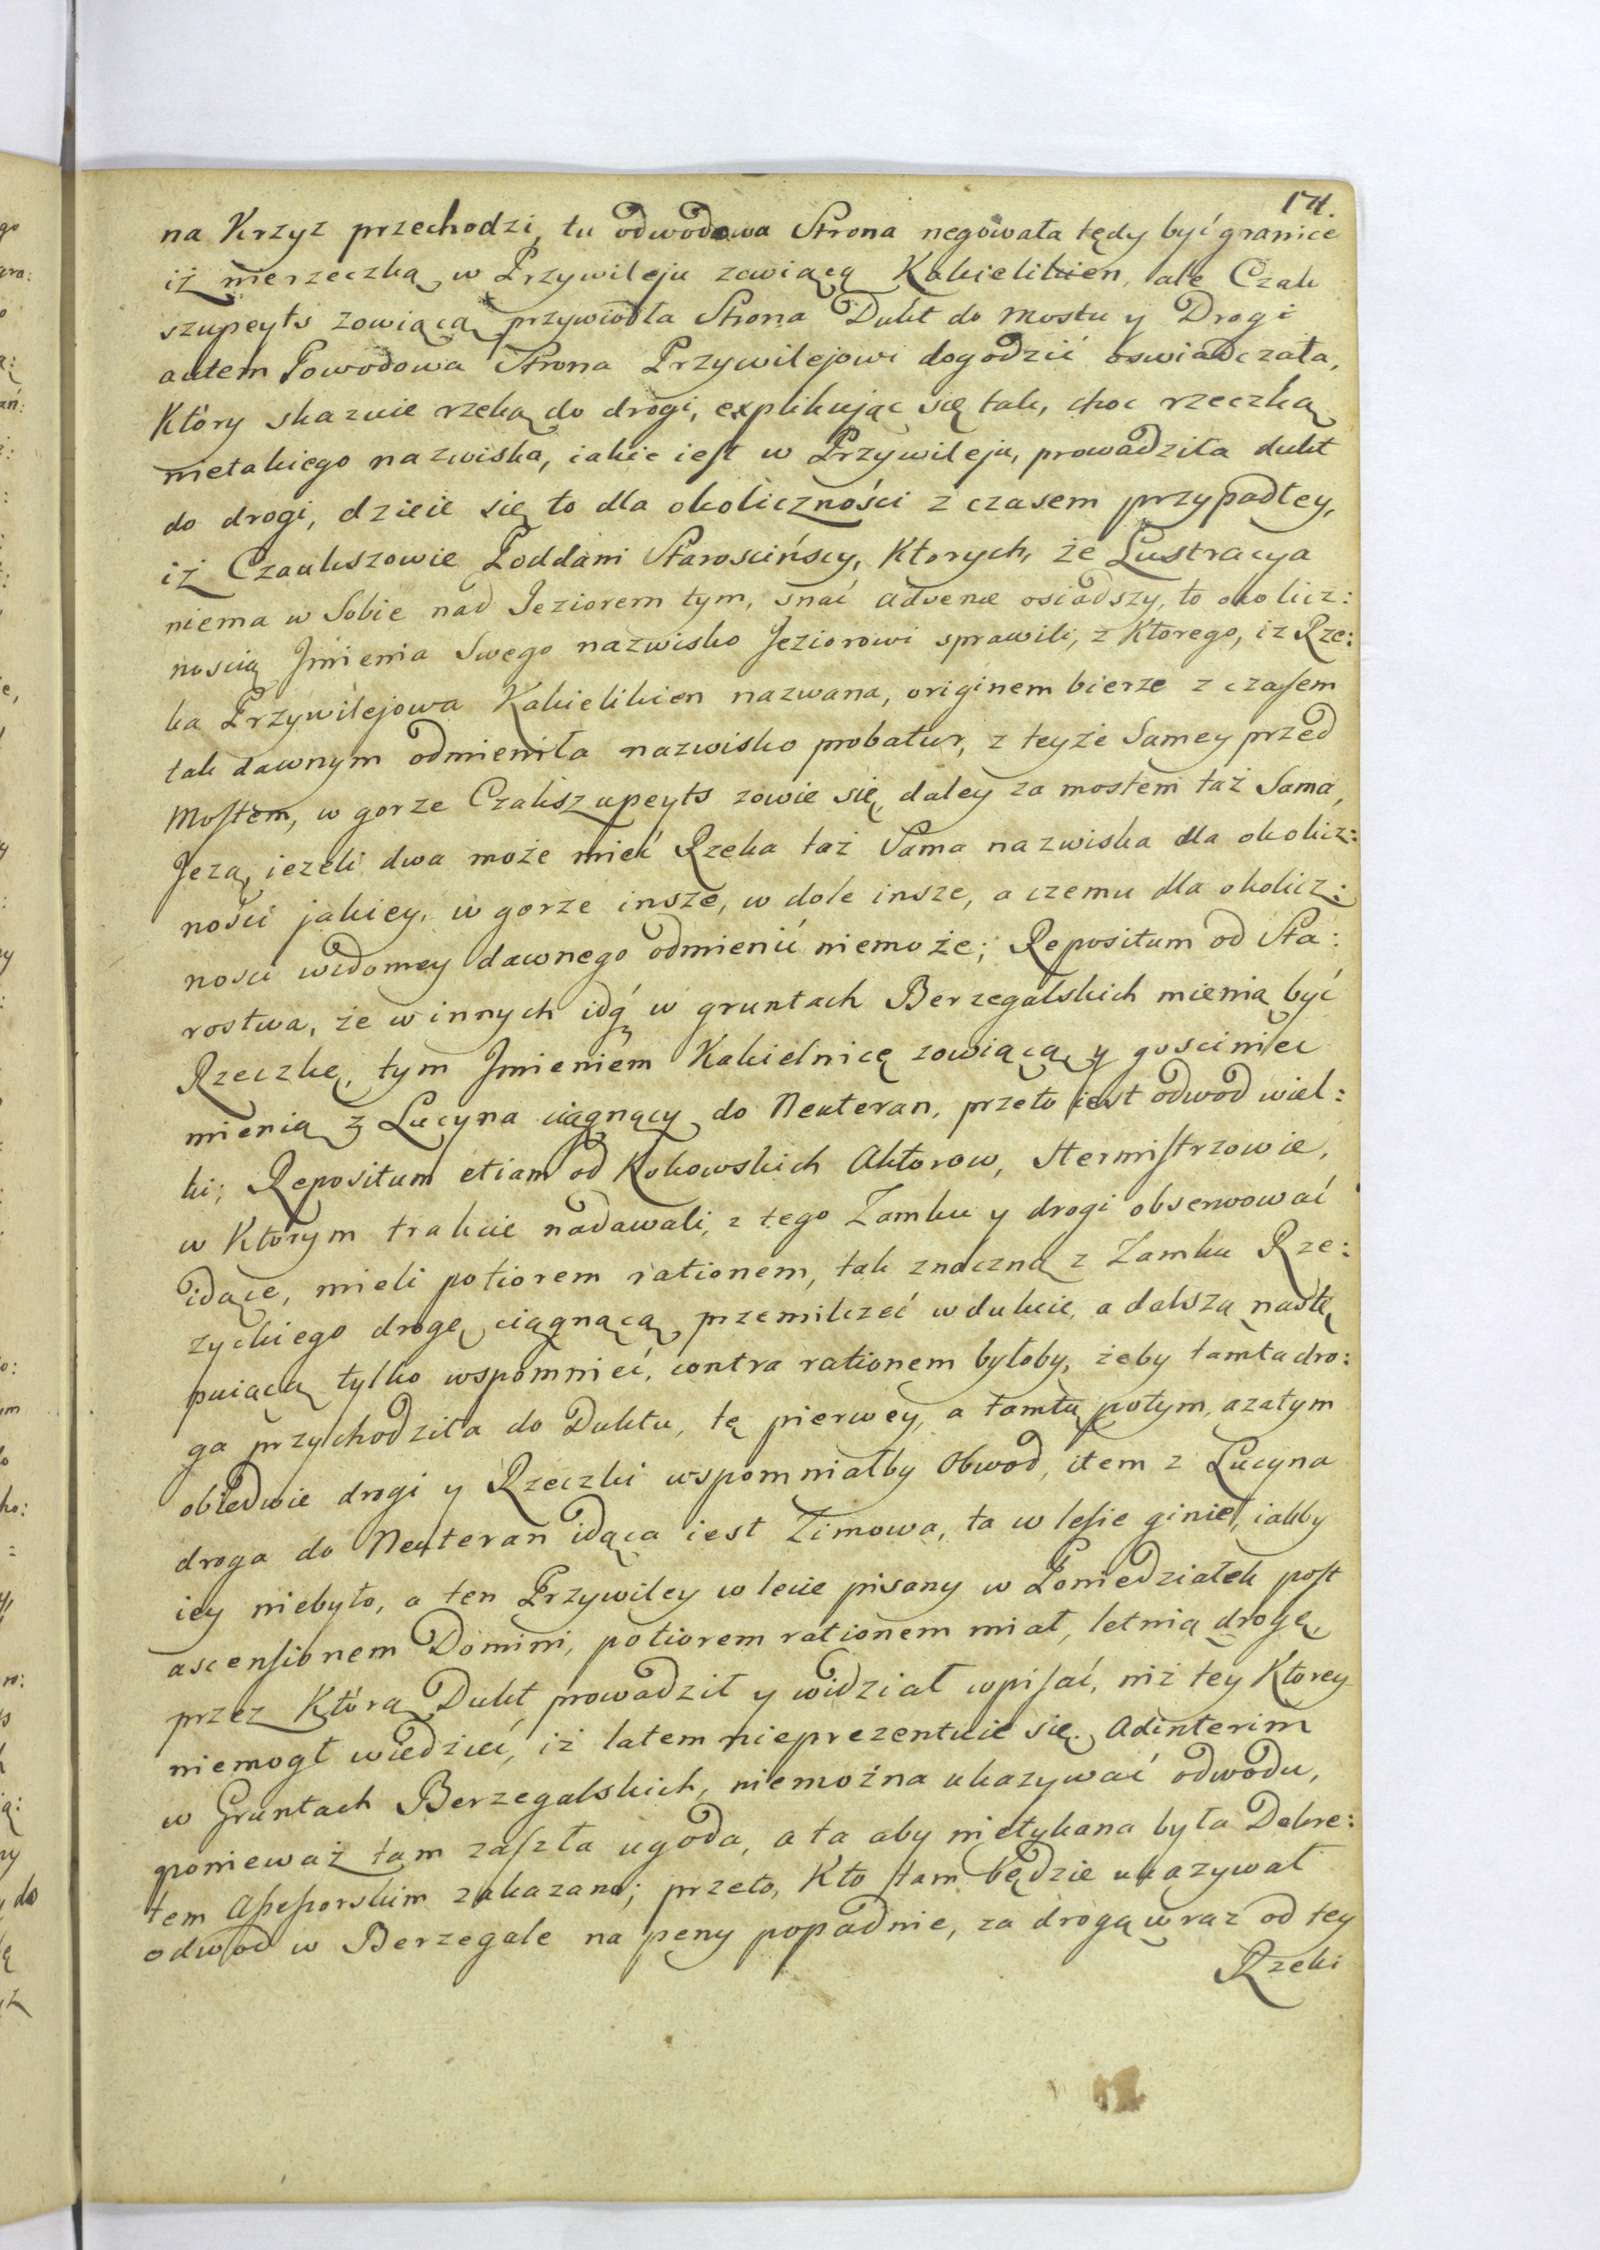 171.
na Krzyz przechodzi, tu odwodowa Strona negowała tędy być granice
iż nierzeczką w Przywileju zowiącą Kakielikien, ale Czak
szupeyts zowiącą przywiodła Strona Dukt do mostu y Drogi
autem Powodowa Strona Przywilejowi dogodzić oswiadczała,
Który skazuie rzeką do drogi, explikując się tak, choc rzeczką
nietakiego nazwiska, iakie iest w Przywileju, prowadziła dukt
do drogi, dzieie się to dla okoliczności z czasem przypadłey,
iż Czaukszowie Poddani Starościńscy, Ktorych, że Lustracya
niema w Sobie nad Jeziorem tym, snać advenæ osiadszy, to okolicz:
nością Jmienia Swego nazwisko Jeziorowi sprawili, z Ktorego, iz Rze:
ka Przywilejowa Kakielikien nazwana, originem bierze z czasem
tak dawnym odmieniła nazwisko probatur, z teyże Samey przed
Mostem, w gorze Czakszupeyts zowie się, daley za mostem taż Sama
Jezą, iezeli dwa może mieć Rzeka taż Sama nazwiska dla okolicz:
ności jakiey, w gorze insze, w dole insze, a czemu dla okolicz:
nosci widomey dawnego odmienić niemoże; Repositum od Sta:
rostwa, że w innych idą w gruntach Berzegalskich mienią być
Rzeczkę, tym Jmieniem Kakielnicę zowiącą y gosciniec
mienią z Lucyna ciągnący do Neuteran, przeto iest odwod wiel:
ki; Repositum etiam od Kokowskich Aktorow, Hermistrzowie,
w Którym trakcie nadawali, z tego Zamku y drogi obserwować
idące, mieli potiorem rationem, tak znaczną z Zamku Rze:
zyckiego drogę ciągnącą przemilczeć w dukcie, a dalszą nastę
puiącą tylko wspomnieć, contra rationem byłoby, żeby tamta dro:
ga przychodziła do Duktu, tę pierwey, a tamtą potym, azatym
obiedwie drogi y Rzeczki wspomniałby Obwod, item z Lucyna
droga do Neuteran idąca iest Zimowa, ta w lesie ginie, iakby
iey niebyło, a ten Przywiley w lecie pisany w Poniedziałek post
ascensionem Domini, potiorem rationem miał, letnią drogę,
przez Którą Dukt prowadził y widział wpisać, niż tey Ktorey
niemogł wiedzieć, iż latem nieprezentuie się. Adinterim
w Gruntach Berzegalskich, niemożna ukazywać odwodu,
ponieważ tam zaszła ugoda, a ta aby nietykana była Dekre:
tem Assessorskim zakazano; przeto, Kto tam będzie ukazywał
odwod w Berzegale na peny popadnie, za drogą wraz od tey
Rzeki